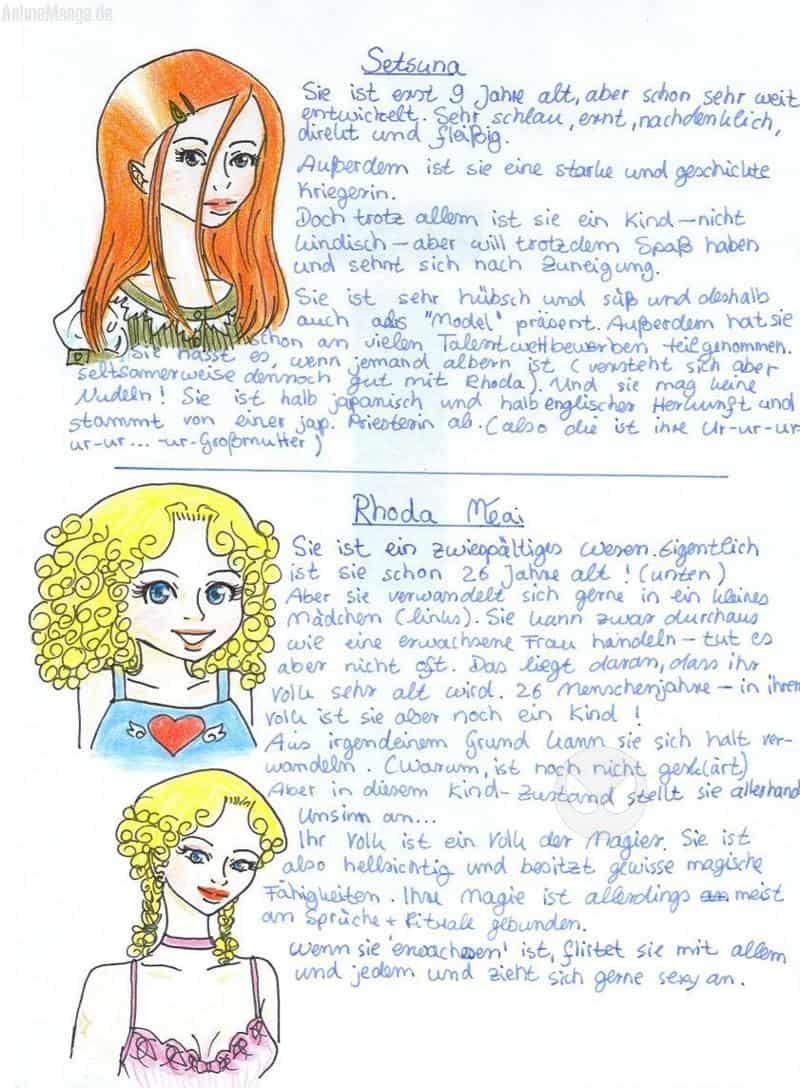 AnimeManga.de
Setsuna
Sie ist erst 9 Jahre alt, aber schon sehr weit
entwickelt. Sehr schlau, ernt, nachdenklich,
direkt und fleißig.
Außerdem ist sie eine starke und geschickte
Kriegerin.
Doch trotz allem ist sie ein Kind – nicht
kindisch – aber will trotzdem Spaß haben
und sehnt sich nach Zuneigung.
Sie ist sehr hübsch und süß und deshalb
auch als "Model" präsent. Außerdem hat sie
schon an vielen Talentwettbewerben teilgenommen.
Sie hasst es, wenn jemand albern ist (versteht sich aber
seltsamerweise dennoch gut mit Rhoda). Und sie mag keine
Nudeln! Sie ist halb japanisch und halb englischer Herkunft und
stammt von einer jap. Priesterin ab. (also die ist ihre Ur-ur-ur-
ur-ur... -ur-Großmutter)
Rhoda Meai
Sie ist ein zwiespältiges Wesen. Eigentlich
ist sie schon 26 Jahre alt! (unten)
Aber sie verwandelt sich gerne in ein kleines
Mädchen (links). Sie kann zwar durchaus
wie eine erwachsene Frau handeln – tut es
aber nicht oft. Das liegt daran, dass ihr
Volk sehr alt wird. 26 Menschenjahre – in ihrem
Volk ist sie aber noch ein Kind!
Aus irgendeinem Grund kann sie sich halt ver-
wandeln. (Warum, ist noch nicht geklärt)
Aber in diesem Kind-Zustand stellt sie allerhand
Unsinn an...
Ihr Volk ist ein Volk der Magier. Sie ist
also hellsichtig und besitzt gewisse magische
Fähigkeiten. Ihre Magie ist allerdings meist
an Sprüche + Rituale gebunden.
Wenn sie 'erwachsen' ist, flirtet sie mit allem
und jedem und zieht sich gerne sexy an.